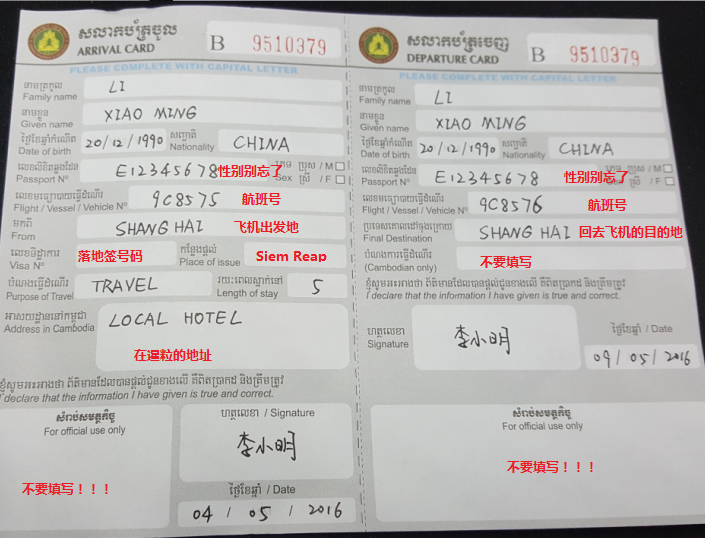 សលាកប័ត្រចូល
ARRIVAL CARD
B 9510379
PLEASE COMPLETE WITH CAPITAL LETTER
នាមត្រកូល
Family name
LI
នាមខ្លួន
Given name
XIAO MING
ថ្ងៃខែឆ្នាំកំណើត
Date of birth
20/12/1990
សញ្ជាតិ
Nationality
CHINA
លេខលិខិតឆ្លងដែន
Passport Nº
E12345678
性别别忘了
ភេទ ប្រុស / M
Sex ស្រី / F
លេខមធ្យោបាយធ្វើដំណើរ
Flight / Vessel / Vehicle Nº
9C8575
航班号
មកពី
From
SHANG HAI
飞机出发地
លេខទិដ្ឋាការ
Visa Nº
落地签号码
កន្លែងផ្តល់
Place of issue
Siem Reap
បំណងធ្វើដំណើរ
Purpose of Travel
TRAVEL
រយៈពេលស្នាក់នៅ
Length of stay
5
អាសយដ្ឋាននៅកម្ពុជា
Address in Cambodia
LOCAL HOTEL
在暹粒的地址
ខ្ញុំសូមអះអាងថា ព័ត៌មានដែលបានផ្តល់ជូនខាងលើ គឺពិតប្រាកដ និងត្រឹមត្រូវ
I declare that the information I have given is true and correct.
សំរាប់សមត្ថកិច្ច
For official use only
不要填写！！！
ហត្ថលេខា / Signature
李小明
ថ្ងៃខែឆ្នាំ / Date
04 / 05 / 2016
សលាកប័ត្រចេញ
DEPARTURE CARD
B 9510379
PLEASE COMPLETE WITH CAPITAL LETTER
នាមត្រកូល
Family name
LI
នាមខ្លួន
Given name
XIAO MING
ថ្ងៃខែឆ្នាំកំណើត
Date of birth
20/12/1990
សញ្ជាតិ
Nationality
CHINA
លេខលិខិតឆ្លងដែន
Passport Nº
E12345678
性别别忘了
ភេទ ប្រុស / M
Sex ស្រី / F
លេខមធ្យោបាយធ្វើដំណើរ
Flight / Vessel / Vehicle Nº
9C8576
航班号
ប្រទេសគោលដៅចុងក្រោយ
Final Destination
SHANG HAI
回去飞机的目的地
បំណងការធ្វើដំណើរ
(Cambodian only)
不要填写
ខ្ញុំសូមអះអាងថា ព័ត៌មានដែលបានផ្តល់ជូនខាងលើ គឺពិតប្រាកដ និងត្រឹមត្រូវ
I declare that the information I have given is true and correct.
ហត្ថលេខា
Signature
李小明
ថ្ងៃខែឆ្នាំ / Date
09 / 05 / 2016
សំរាប់សមត្ថកិច្ច
For official use only
不要填写！！！